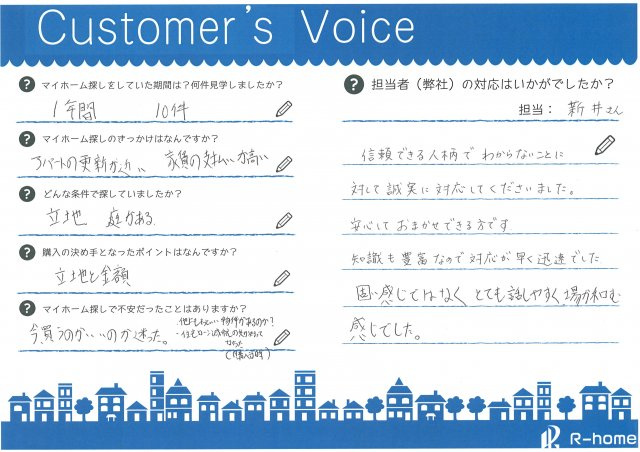 Customer's Voice
? マイホーム探しをしていた期間は？何件見学しましたか？
1年間 10件
? マイホーム探しのきっかけはなんですか？
アパートの更新が近い 家賃の支払いが高い
? どんな条件で探していましたか？
立地 庭がある
? 購入の決め手となったポイントはなんですか？
立地と金額
? マイホーム探しで不安だったことはありますか？
今買うのがいいのか迷った。
・他にもいい物件があるのか？
・住宅ローン減税の
? 担当者（弊社）の対応はいかがでしたか？
担当： 新井さん
信頼できる人柄でわからないことに
対して誠実に対応してくださいました。
安心しておまかせできる方です
知識も豊富なので対応が早く迅速でした
固い感じではなくとても話しやすく場が和む
感じでした。
R-home